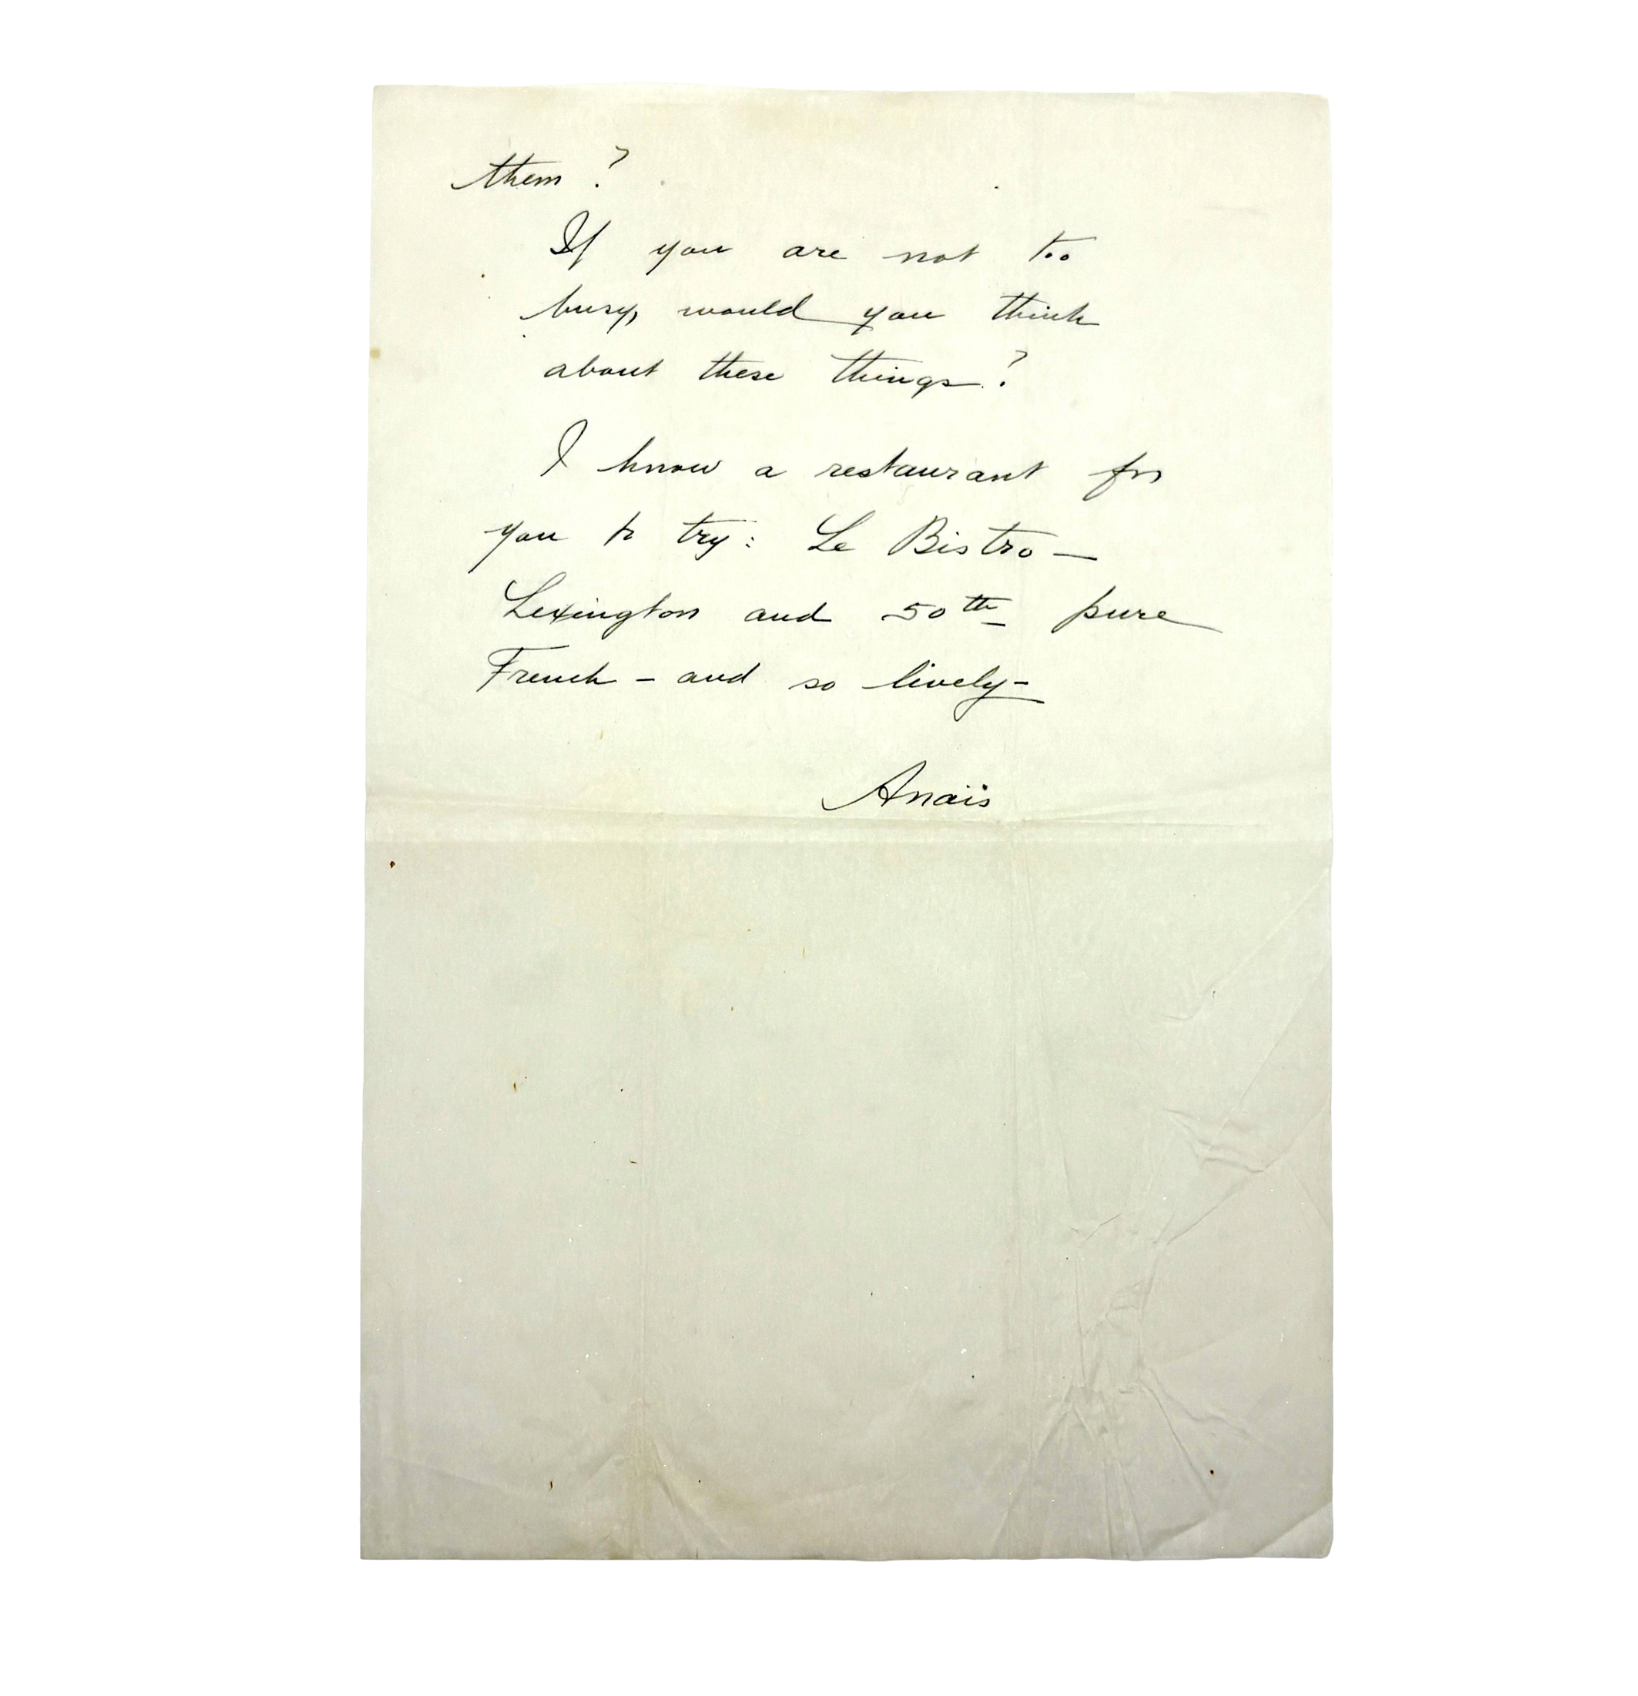 them ?
If you are not too
busy, would you think
about these things ?
I know a restaurant for
you to try : Le Bistro —
Lexington and 50th pure
French – and so lively –
Anaïs